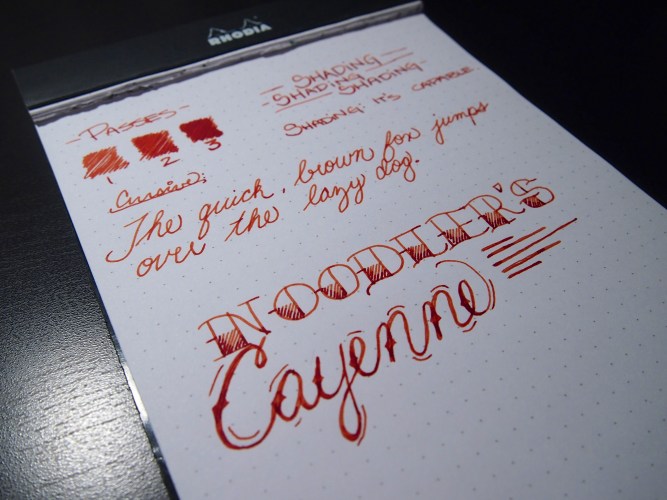 RHODIA
-SHADING-
-SHADING-
SHADING-
SHADING: IT'S CAPABLE
-PASSES-
1 2 3
Cursive:
The quick, brown fox jumps
over the lazy dog.
NOODLER'S
Cayenne